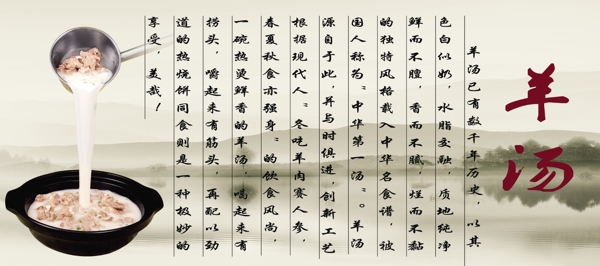 羊汤
羊汤已有数千年历史，以其
色白似奶，水脂交融，质地纯净
鲜而不膻，香而不腻，烂而不黏
的独特风格载入中华名食谱，被
国人称为“中华第一汤”。羊汤
源自于此，并与时俱进，创新工艺
根据现代人“冬吃羊肉赛人参，
春夏秋食亦强身”的饮食风尚，
一碗热烫鲜香的羊汤，喝起来有
捞头，嚼起来有筋头，再配以劲
道的热烧饼同食则是一种极妙的
享受，美哉！